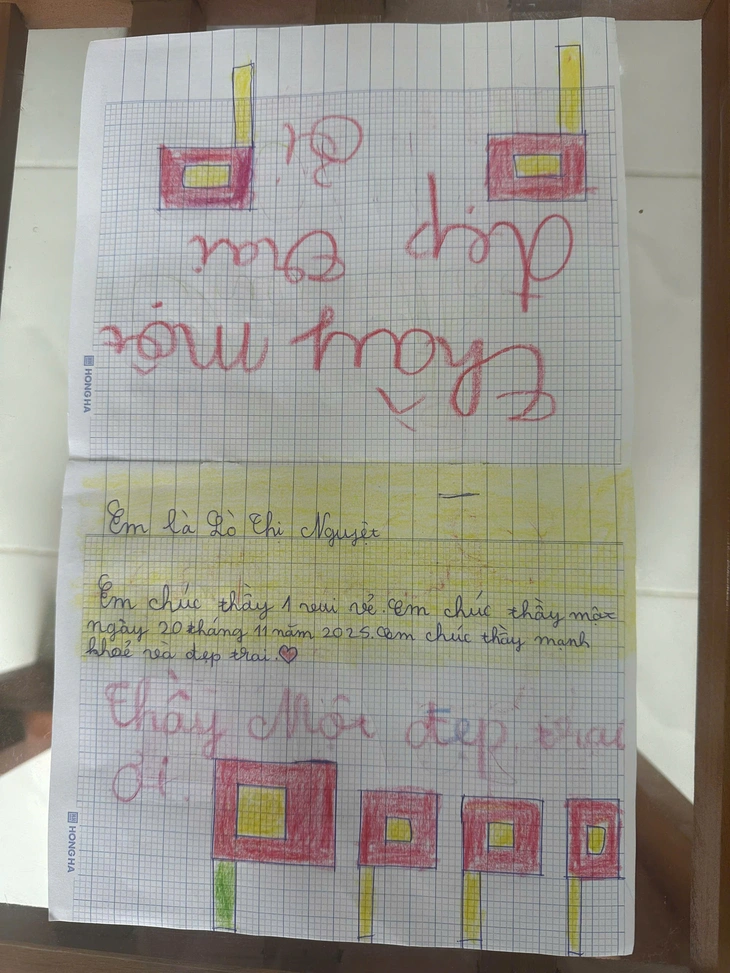 Thầy một
đẹp trai
ơi
HONG HA
Em là Lò Thị Nguyệt
Em chúc thầy 1 vui vẻ. Em chúc thầy một
ngày 20 tháng 11 năm 2025. Em chúc thầy mạnh
khoẻ và đẹp trai.
Thầy Một đẹp trai
ơi.
HONG HA